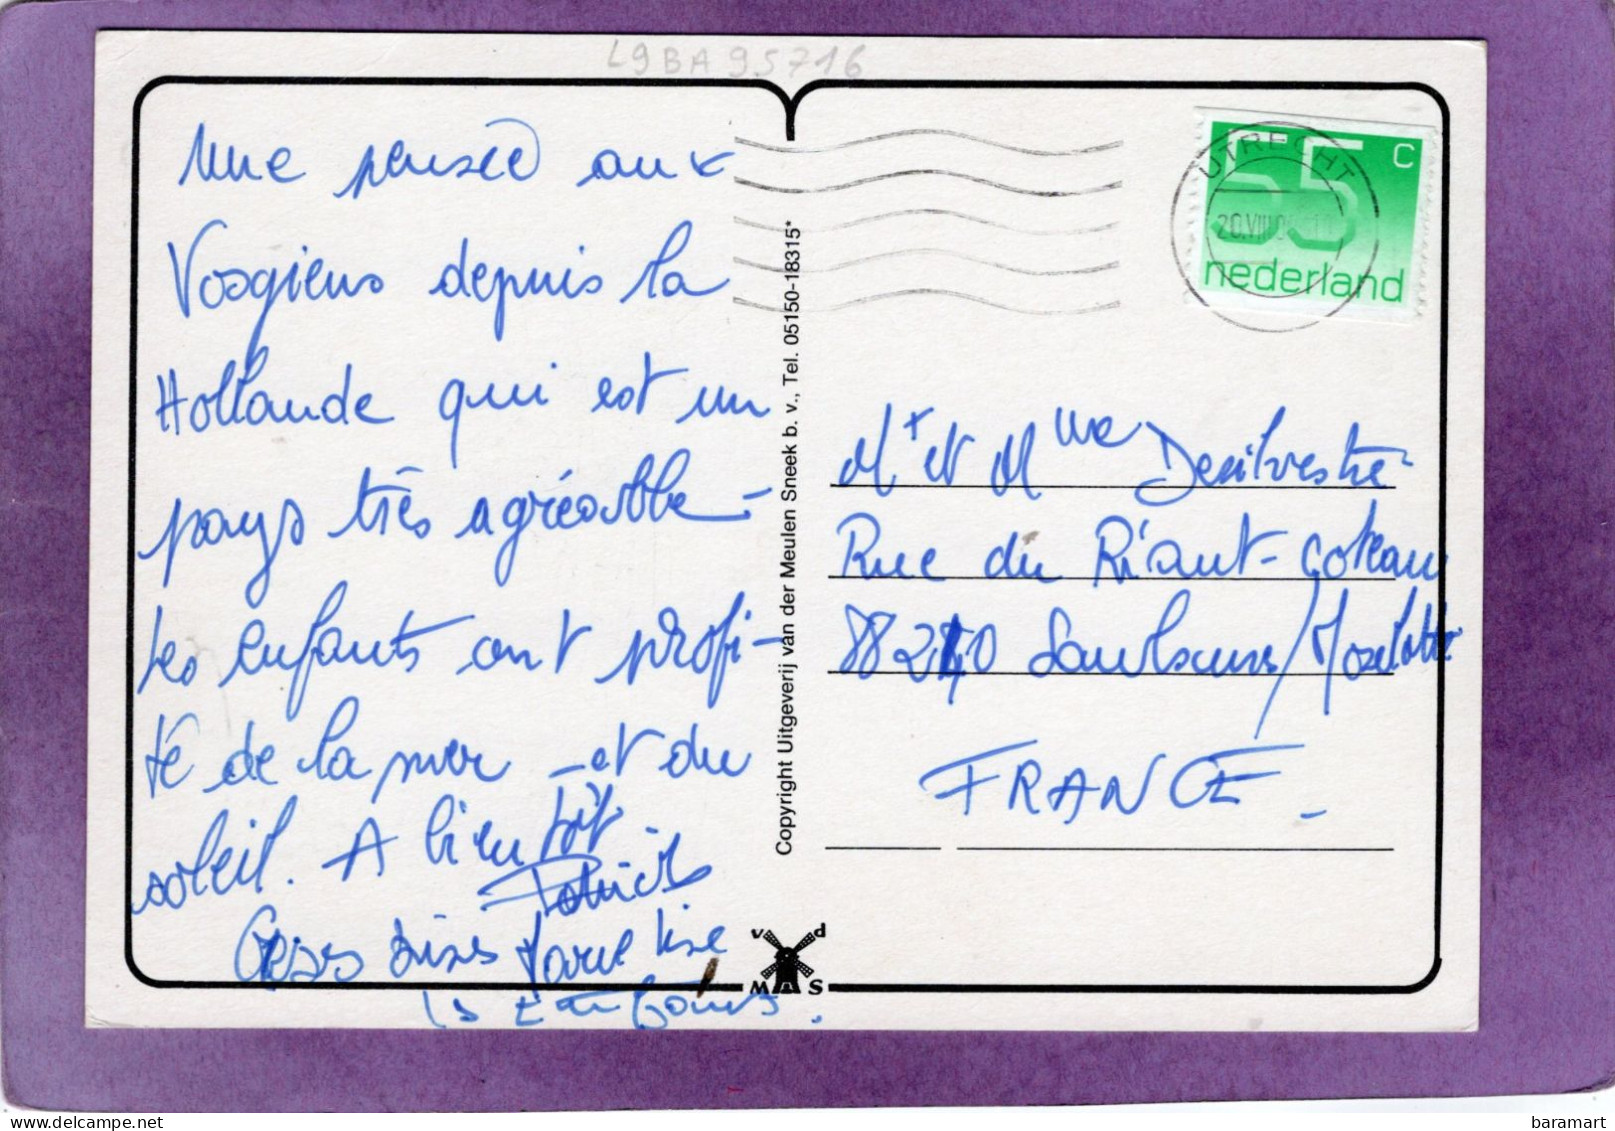 L9BA95716
Une pensée aux
Vosgiens depuis la
Hollande qui est un
pays très agréable -
Les enfants ont profi-
té de la mer - et du
soleil. A bientôt
Patrick
Gros bises Marie Lise
Les Enfants.
Copyright Uitgeverij van der Meulen Sneek b. v., Tel. 05150-18315*
v d
M S
UTRECHT
20.VIII
55 c
nederland
Mr et Mme Desilvestre
Rue du Riant-Coteau
88210 /Moselotte
FRANCE.
baramart